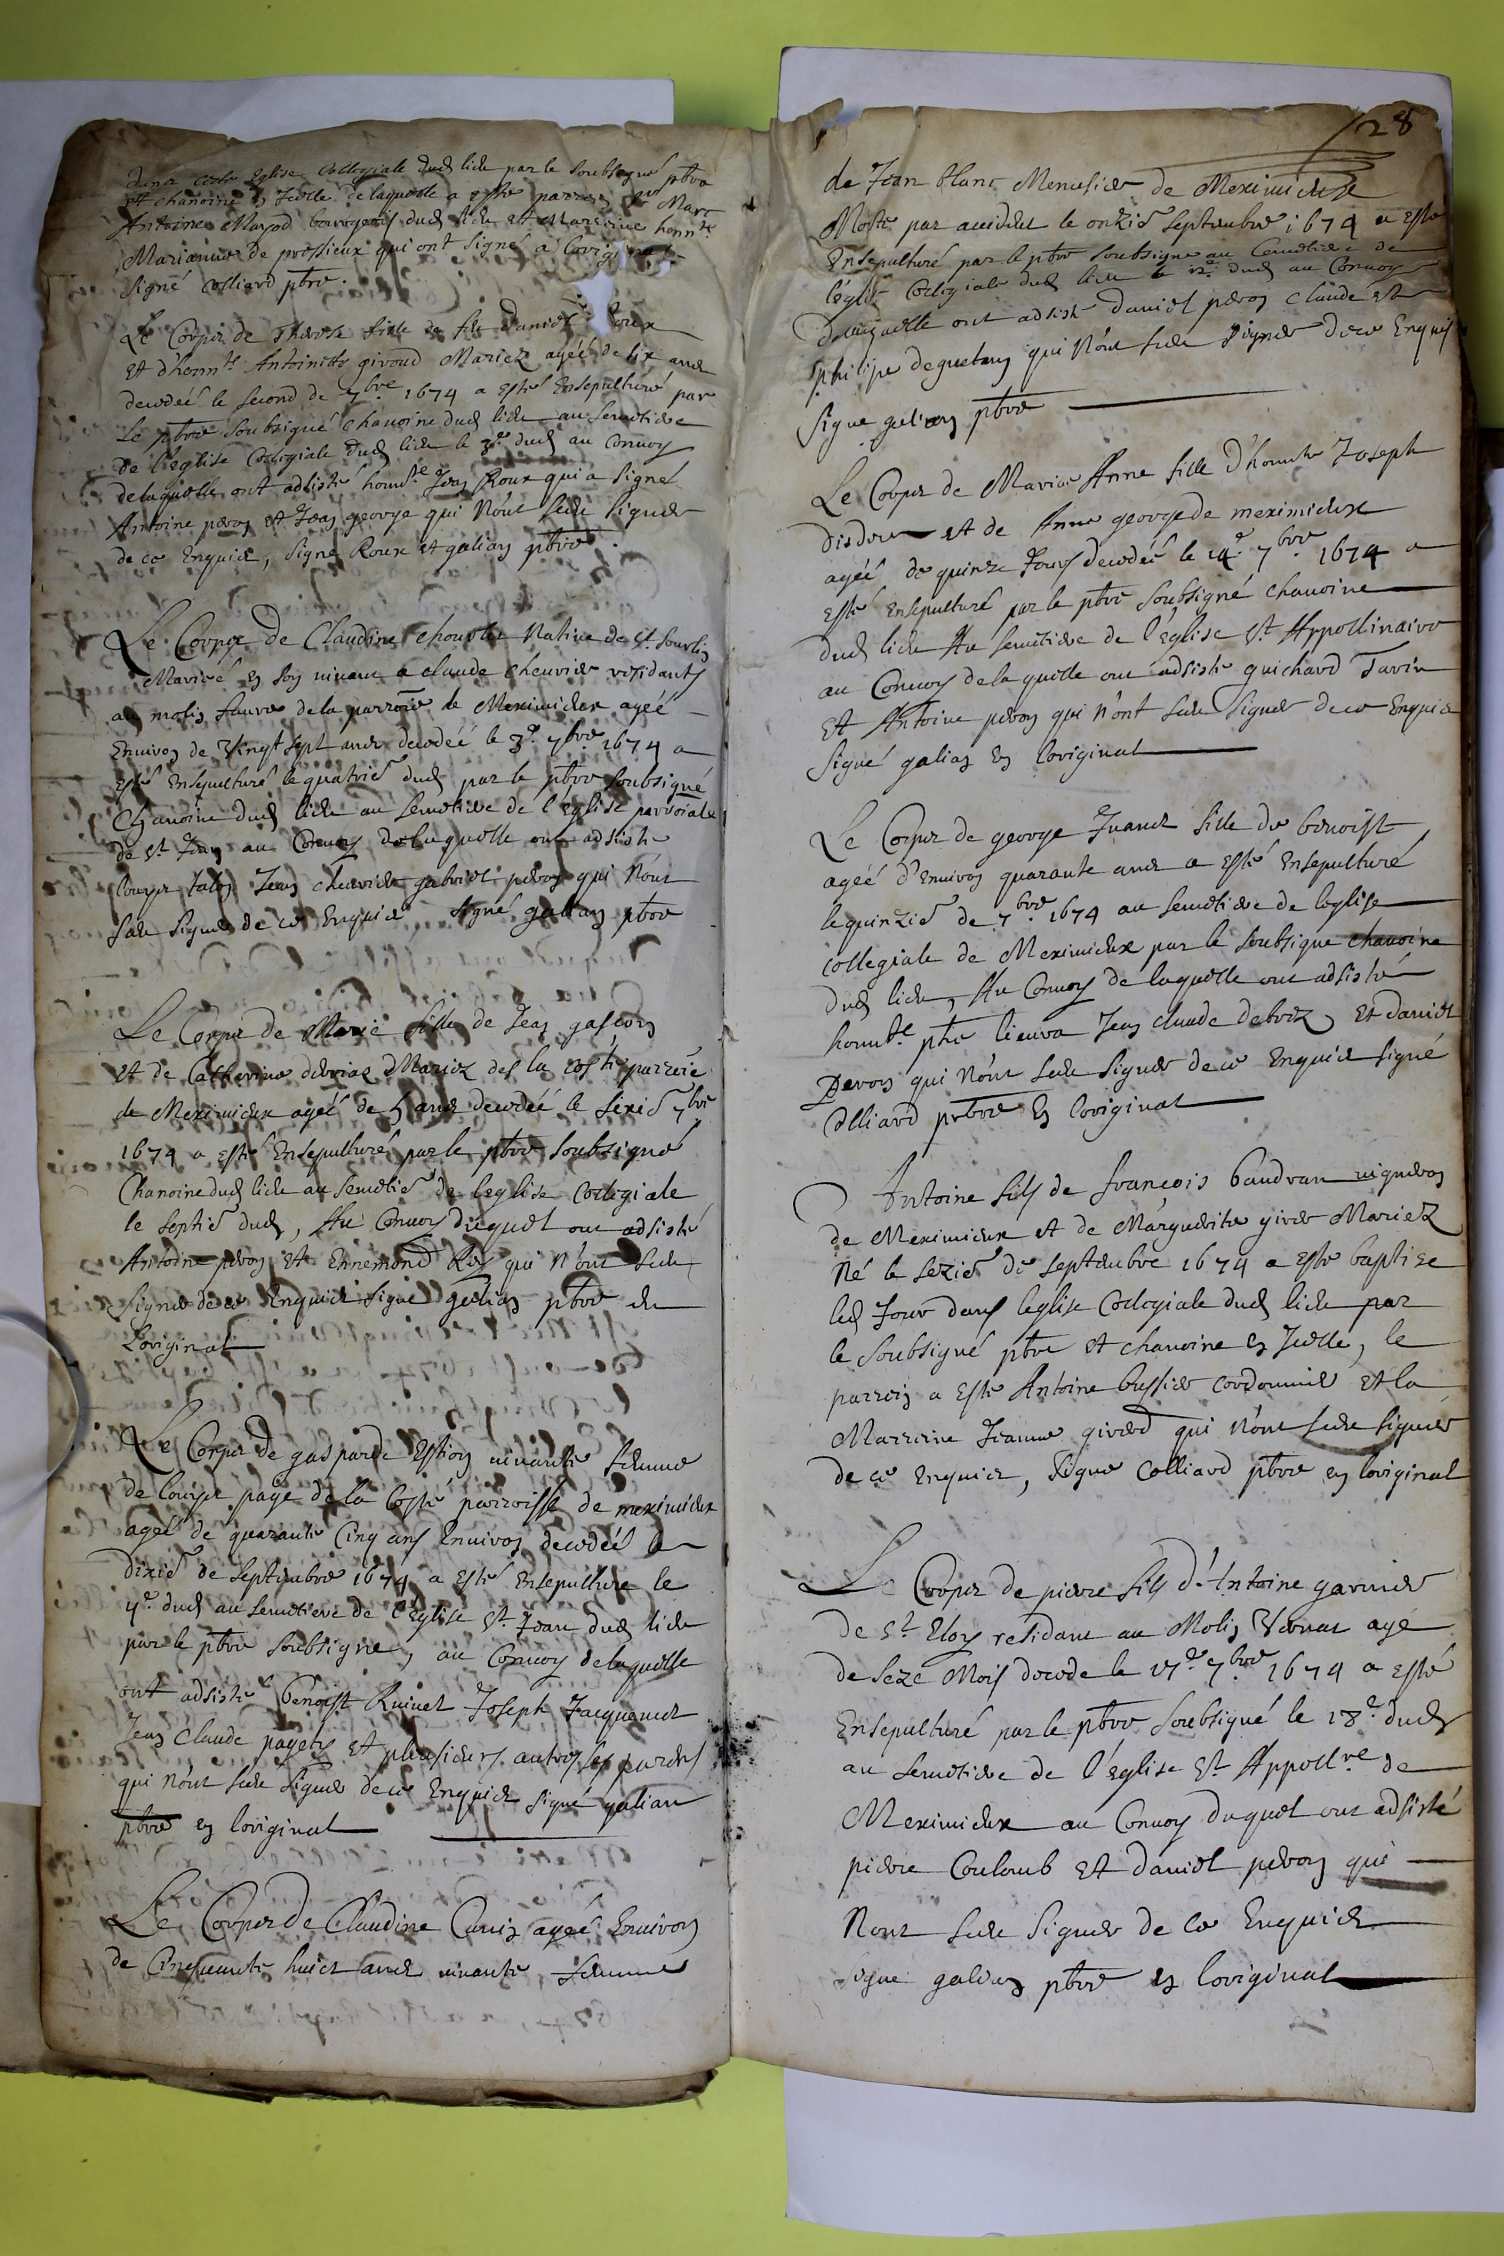 dans cette Eglise Collegiale dud lieu par le soubsigné pbre
et chanoine en Icelle de laquelle a esté parrein Sr Marc
Antoine Mayod bourgeois dud lieu et Marreine honnte
Marianne de prossieux qui ont signé a loriginal
signé Colliard pbre.
Le Corps de Therese fille de feu Daniel Roux
et d'honnte Antoinette giroud Mariez agéé de six ans
decedéé le second de 7bre 1674 a esté Ensepulturé par
Le pbre soubsigné chanoine dud lieu au semetiere
de l'eglise Collegiale dud lieu le 3e dud au Convoy
delaquelle ont adsisté honnte Jean Roux qui a signé
Antoine peron et Jean george qui N'ont sceu signer
de ce Enquis, signé Roux et galian pbre.
Le Corps de Claudine Native de St Sourlin
Mariéé en son vivant a claude cheuvier residants
au molin faure de la parroie de Meximieux agéé
Environ de Vingt sept ans decedéé le 3e 7bre 1674 a
esté Ensepulturé le quatrie dud par le pbre soubsigné
Chanoine dud lieu au semetiere de l'eglise parroiale
de St Jean au Convoy delaquelle ont adsisté
Louys Jean cheuvier gabriel peron qui N'ont
sceu signer de ce Enquis, signé galian pbre
Le Corps de Marie fille de Jean gascon
et de Catherine Mariez de la costé parreie
de Meximieux agéé de 5 ans decedéé le sixie 7bre
1674 a esté Ensepulturé par le pbre soubsigné
Chanoine dud lieu au semetie de leglise Collegiale
le septie dud, Au Convoy duquel ont adsisté
Antoine peron et Ennemond Rey qui N'ont sceu
signer de ce Enquis signé galian pbre en
Loriginal
Le Corps de gasparde Estion vivante femme
de Louis page de la Costé parroisse de meximieux
agéé de quarante Cinq ans Environ decedéé le
dixie de septembre 1674 a esté Ensepulturé le
11e dud au semetiere de l'Eglise St Jean dud lieu
par le pbre soubsigné, au Convoy delaquelle
ont adsisté benoist Ruinet Joseph Jacquemet
Jean Claude payet et plusieurs autres ses parens
qui N'ont sceu signer de ce Enquis signé galian
pbre en loriginal
Le Corps De Claudine agéé Environ
de Cinquante huict ans vivante femme
28
de Jean blanc Menuisier de Meximieux
Morte par accident le onzie septembre 1674 a esté
Ensepulturé par le pbre soubsigné au Cemetiere de
l'eglise Collegiale dud lieu le 12e dud au Convoy
delaquelle ont adsisté daniel peron claude et
philipe deguetan qui N'ont sceu signer de ce Enquis
signe galian pbre
Le Corps de Marie Anne fille D'honnte Joseph
disdier et de Anne george de meximieux
agéé de quinze Jours decedéé le 14e 7bre 1674 a
esté ensepulturé par le pbre soubsigné chanoine
dud lieu Au semetiere de l'eglise St Appollinaire
au Convoy delaquelle ont adsisté guichard Tavin
Et Antoine peron qui n'ont sceu signer de ce Enquis
signé galian en loriginal
Le Corps de george Juanes fille de benoist
agéé d'Environ quarante ans a esté ensepulturé
le quinzie de 7bre 1674 au semetiere de leglise
collegiale de Meximieux par le soubsigne chanoine
dud lieu, Au Convoy de laquelle ont adsisté
honnte phe lieura Jean claude deboz et daniel
Peron qui N'ont sceu signer de ce Enquis signé
Colliard prbre en loriginal
Antoine fils de francois baudran vigneron
de Meximieux et de Marguerite giver Mariez
Né le sezie de septembre 1674 a esté baptize
led Jour dans leglise Collegiale dud lieu par
le soubsigné pbre et chanoine en Icelle, le
parrein a esté Antoine bussier cordonnie et la
Marreine Jeanne giverd qui N'ont sceu signer
de ce enquis, signe Colliard pbre en loriginal
Le Corps de pierre fils d'Antoine garnier
de St Eloy residant au Molin Vernat agé
de seze Mois decede le 17e 7bre 1674 a esté
Ensepulturé par le pbre soubsigné le 18e dud
au semetiere de l'eglise St Appollre de
Meximieux au Convoy duquel ont adsisté
pierre Couloub et daniel peron qui
Nont sceu signer de ce Enquis
signe galian pbre en loriginal